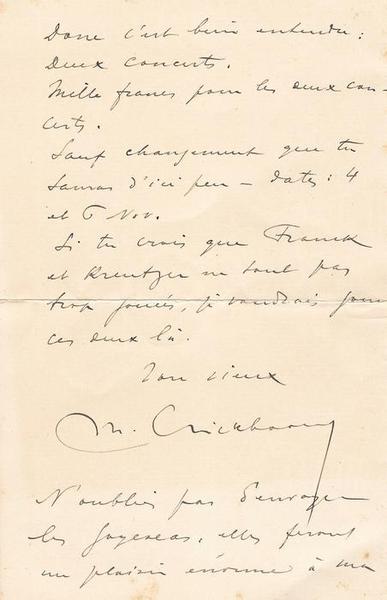 Donc c'est bien entendu :
Deux concerts.
Mille francs pour les deux con-
certs.
Sauf changement que tu
sauras d'ici peu – dates : 4
et 6 Nov.
Si tu crois que Franck
et Kreutzer ne sont pas
trop joués, je voudrais jouer
ces deux là.
Ton vieux
M. Crickboom
N'oublies pas d'envoyer
les Goyescas, elles feront
un plaisir énorme à ma